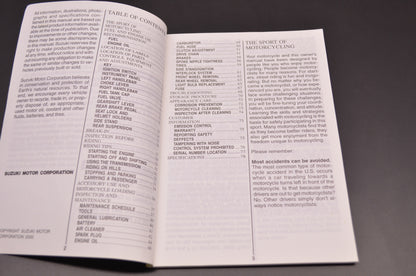 All information, illustrations, photo-
graphs and specifications con-
tained in this manual are based on
the latest product information avail-
able at the time of publication. Due
to improvements or other changes,
there may be some discrepancies
in this manual. Suzuki reserves the
right to make production changes
at any time, without notice and with-
out incurring any obligation to make
the same or similar changes to ve-
hicles previously built or sold.
Suzuki Motor Corporation believes
in conservation and protection of
Earth's natural resources. To that
end, we encourage every vehicle
owner to recycle, trade in, or prop-
erly dispose of, as appropriate,
used motor oil, coolant and other
fluids, batteries, and tires.
SUZUKI MOTOR CORPORATION
COPYRIGHT SUZUKI MOTOR
CORPORATION
2
TABLE OF CONTENTS
THE SPORT OF
MOTORCYCLING
FUEL
ENGINE OIL
LOCATION OF
KEY
IGNITION SWITCH
INSTRUMENT PANEL
LEFT HANDLEBAR
RIGHT HANDLEBAR
FUEL TANK CAP
GEARSHIFT LEVER
REAR BRAKE PEDAL
SEAT LOCK AND
HELMET HOLDERS
SIDE STAND
REAR SUSPENSION
BREAK-IN
INSPECTION BEFORE
RIDING
RIDING TIPS
STARTING THE ENGINE
STARTING OFF AND SHIFTING
USING THE TRANSMISSION
RIDING ON HILLS
STOPPING AND PARKING
CARRYING A PASSENGER
ACCESSORY USE AND
MOTORCYCLE LOADING
INSPECTION AND
MAINTENANCE
MAINTENANCE SCHEDULE
TOOLS
GENERAL LUBRICATION
BATTERY
AIR CLEANER
SPARK PLUG
ENGINE OIL
CARBURETOR
FUEL HOSE
CLUTCH ADJUSTMENT
DRIVE CHAIN
BRAKES
SPOKE NIPPLE TIGHTNESS
TIRES
SIDE STAND/IGNITION
INTERLOCK SYSTEM
FRONT WHEEL REMOVAL
REAR WHEEL REMOVAL
LIGHT BULB REPLACEMENT
FUSE
TROUBLESHOOTING
STORAGE PROCEDURE
CORROSION PREVENTION
MOTORCYCLE CLEANING
INSPECTION AFTER CLEANING
CUSTOMER
INFORMATION
EMISSION CONTROL
WARRANTY
REPORTING SAFETY
DEFECTS
TAMPERING WITH NOISE
CONTROL SYSTEM PROHIBITED
SERIAL NUMBER LOCATION
SPECIFICATIONS
THE SPORT OF
MOTORCYCLING
Your motorcycle and this owner's
manual have been designed for
people like you who enjoy motor-
cycling. People become motorcy-
clists for many reasons. For start-
ers, about riding is fun and invigor-
ating. But no matter why you be-
came a motorcyclist, or how experi-
enced you are, you will eventually
face some challenging situations.
In preparing for these challenges,
you will be fine tuning your coordi-
nation, concentration, and attitude.
Learning the skills and strategies
associated with motorcycling is the
basis for safely participating in this
sport. Many motorcyclists find that
as they become better riders, they
also get more enjoyment from the
freedom unique to motorcycling.
Please remember:
Most accidents can be avoided.
The most common type of motor-
cycle accident in the U.S. occurs
when a car travelling towards a
motorcycle turns left in front of
the motorcycle. Is that because other
drivers are out to get motorcyclists?
No. Other drivers simply don't al-
ways notice motorcyclists.